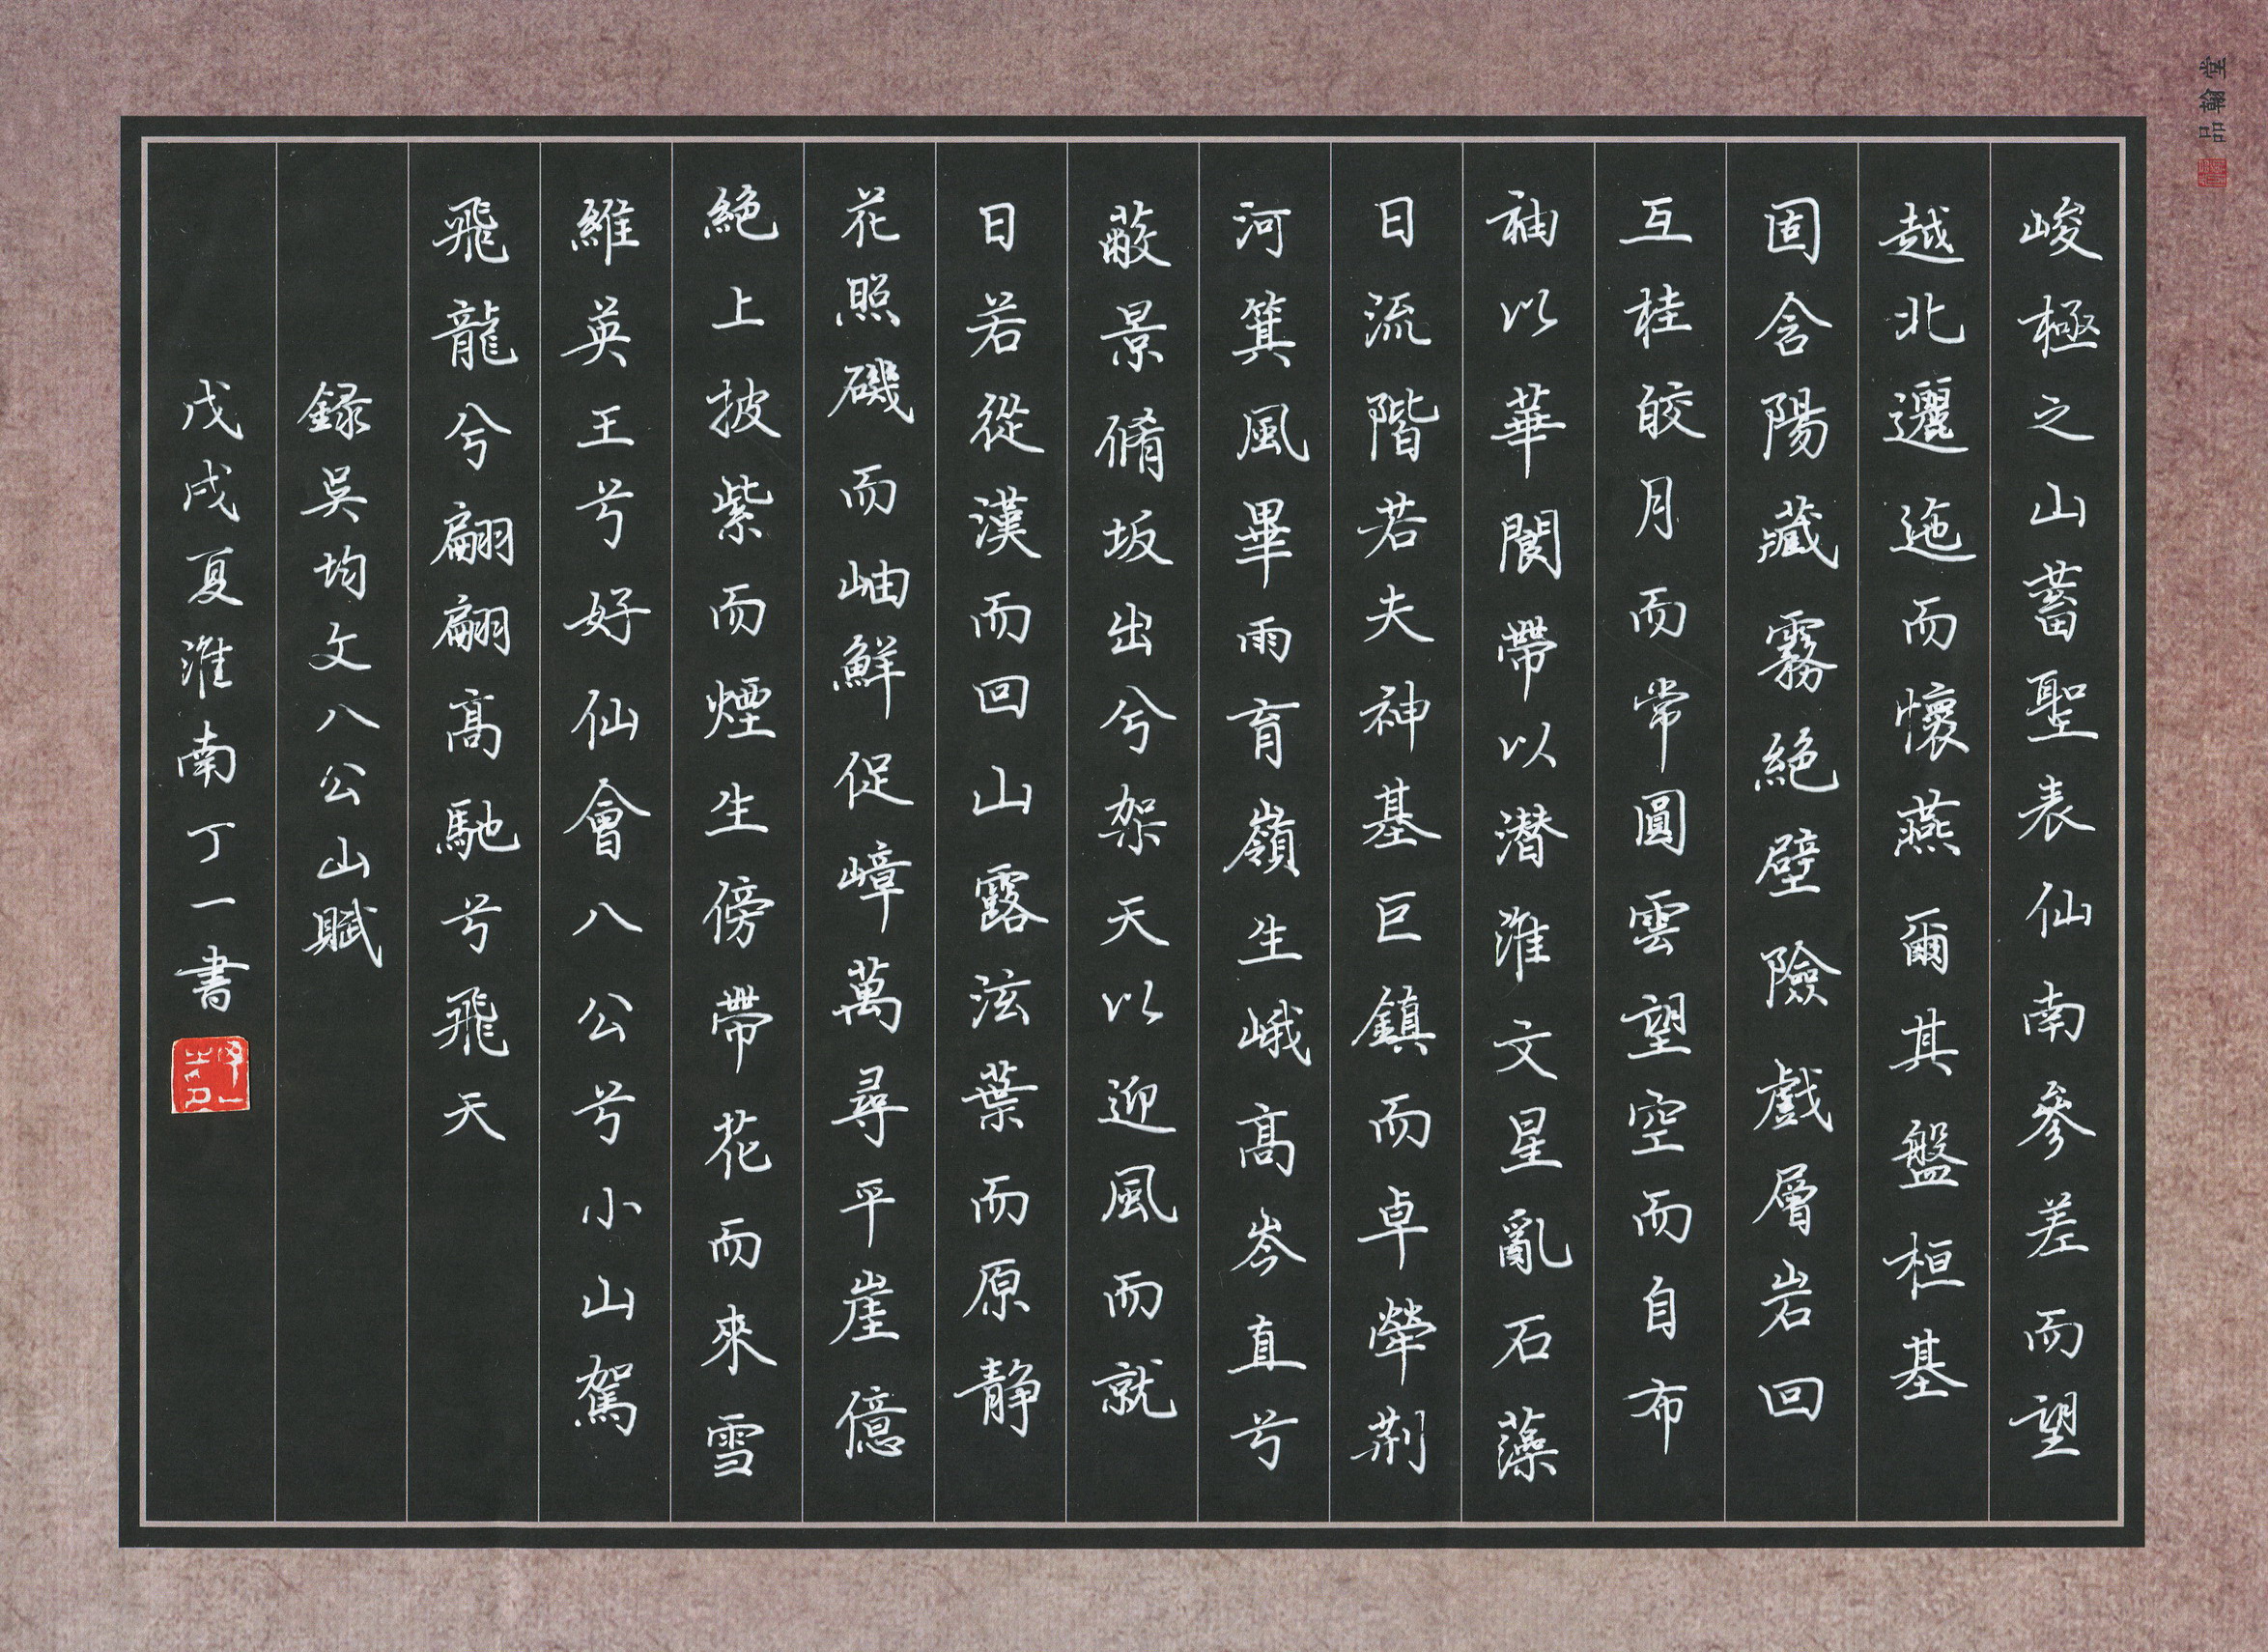 峻極之山蓄聖表仙南參差而望
越北邐迤而懷燕爾其盤桓基
固含陽藏霧絕壁險戲層岩回
互桂皎月而常圓雲望空而自布
袖以華閬帶以潛淮文星亂石藻
日流階若夫神基巨鎮而卓犖荆
河箕風畢雨育嶺生峨高岑直兮
蔽景脩坂出兮架天以迎風而就
日若從漢而回山露泫葉而原静
花照磯而岫鮮促嶂萬尋平崖億
絕上披紫而煙生傍帶花而來雪
維英王兮好仙會八公兮小山駕
飛龍兮翩翩高馳兮飛天
録吳均文八公山賦
戊戌夏淮南丁一書
品翰堂